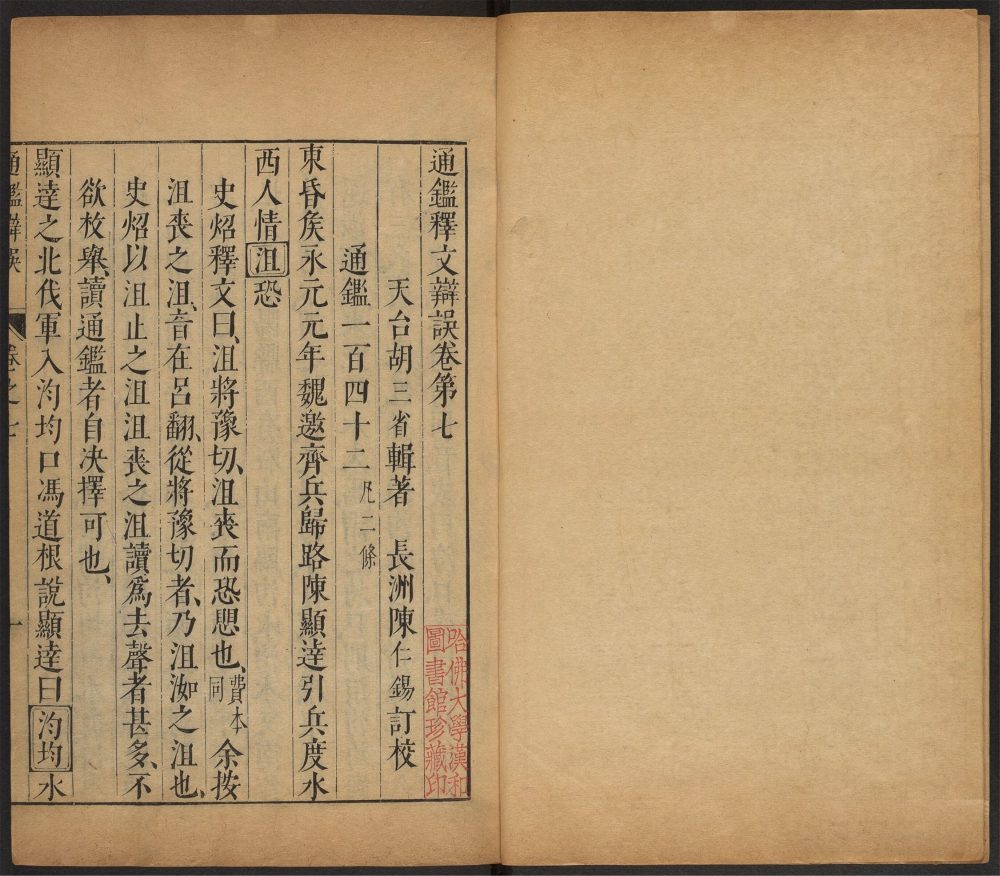 通鑑釋文辯誤卷第七
天台胡三省輯著　長洲陳仁錫訂校
通鑑一百四十二凡二條
東昏矦永元元年魏邀齊兵歸路陳顯達引兵度水
西人情沮恐
史炤釋文曰沮將豫切沮喪而恐愳也費本同余按
沮喪之沮音在呂翻從將豫切者乃沮洳之沮也
史炤以沮止之沮沮喪之沮讀爲去聲者甚多不
欲枚舉讀通鑑者自決擇可也
顯達之北伐軍入汮均口馮道根說顯達曰汮均水
通鑑辯誤　卷之七　一
哈佛大學漢和
圖書館珍藏印